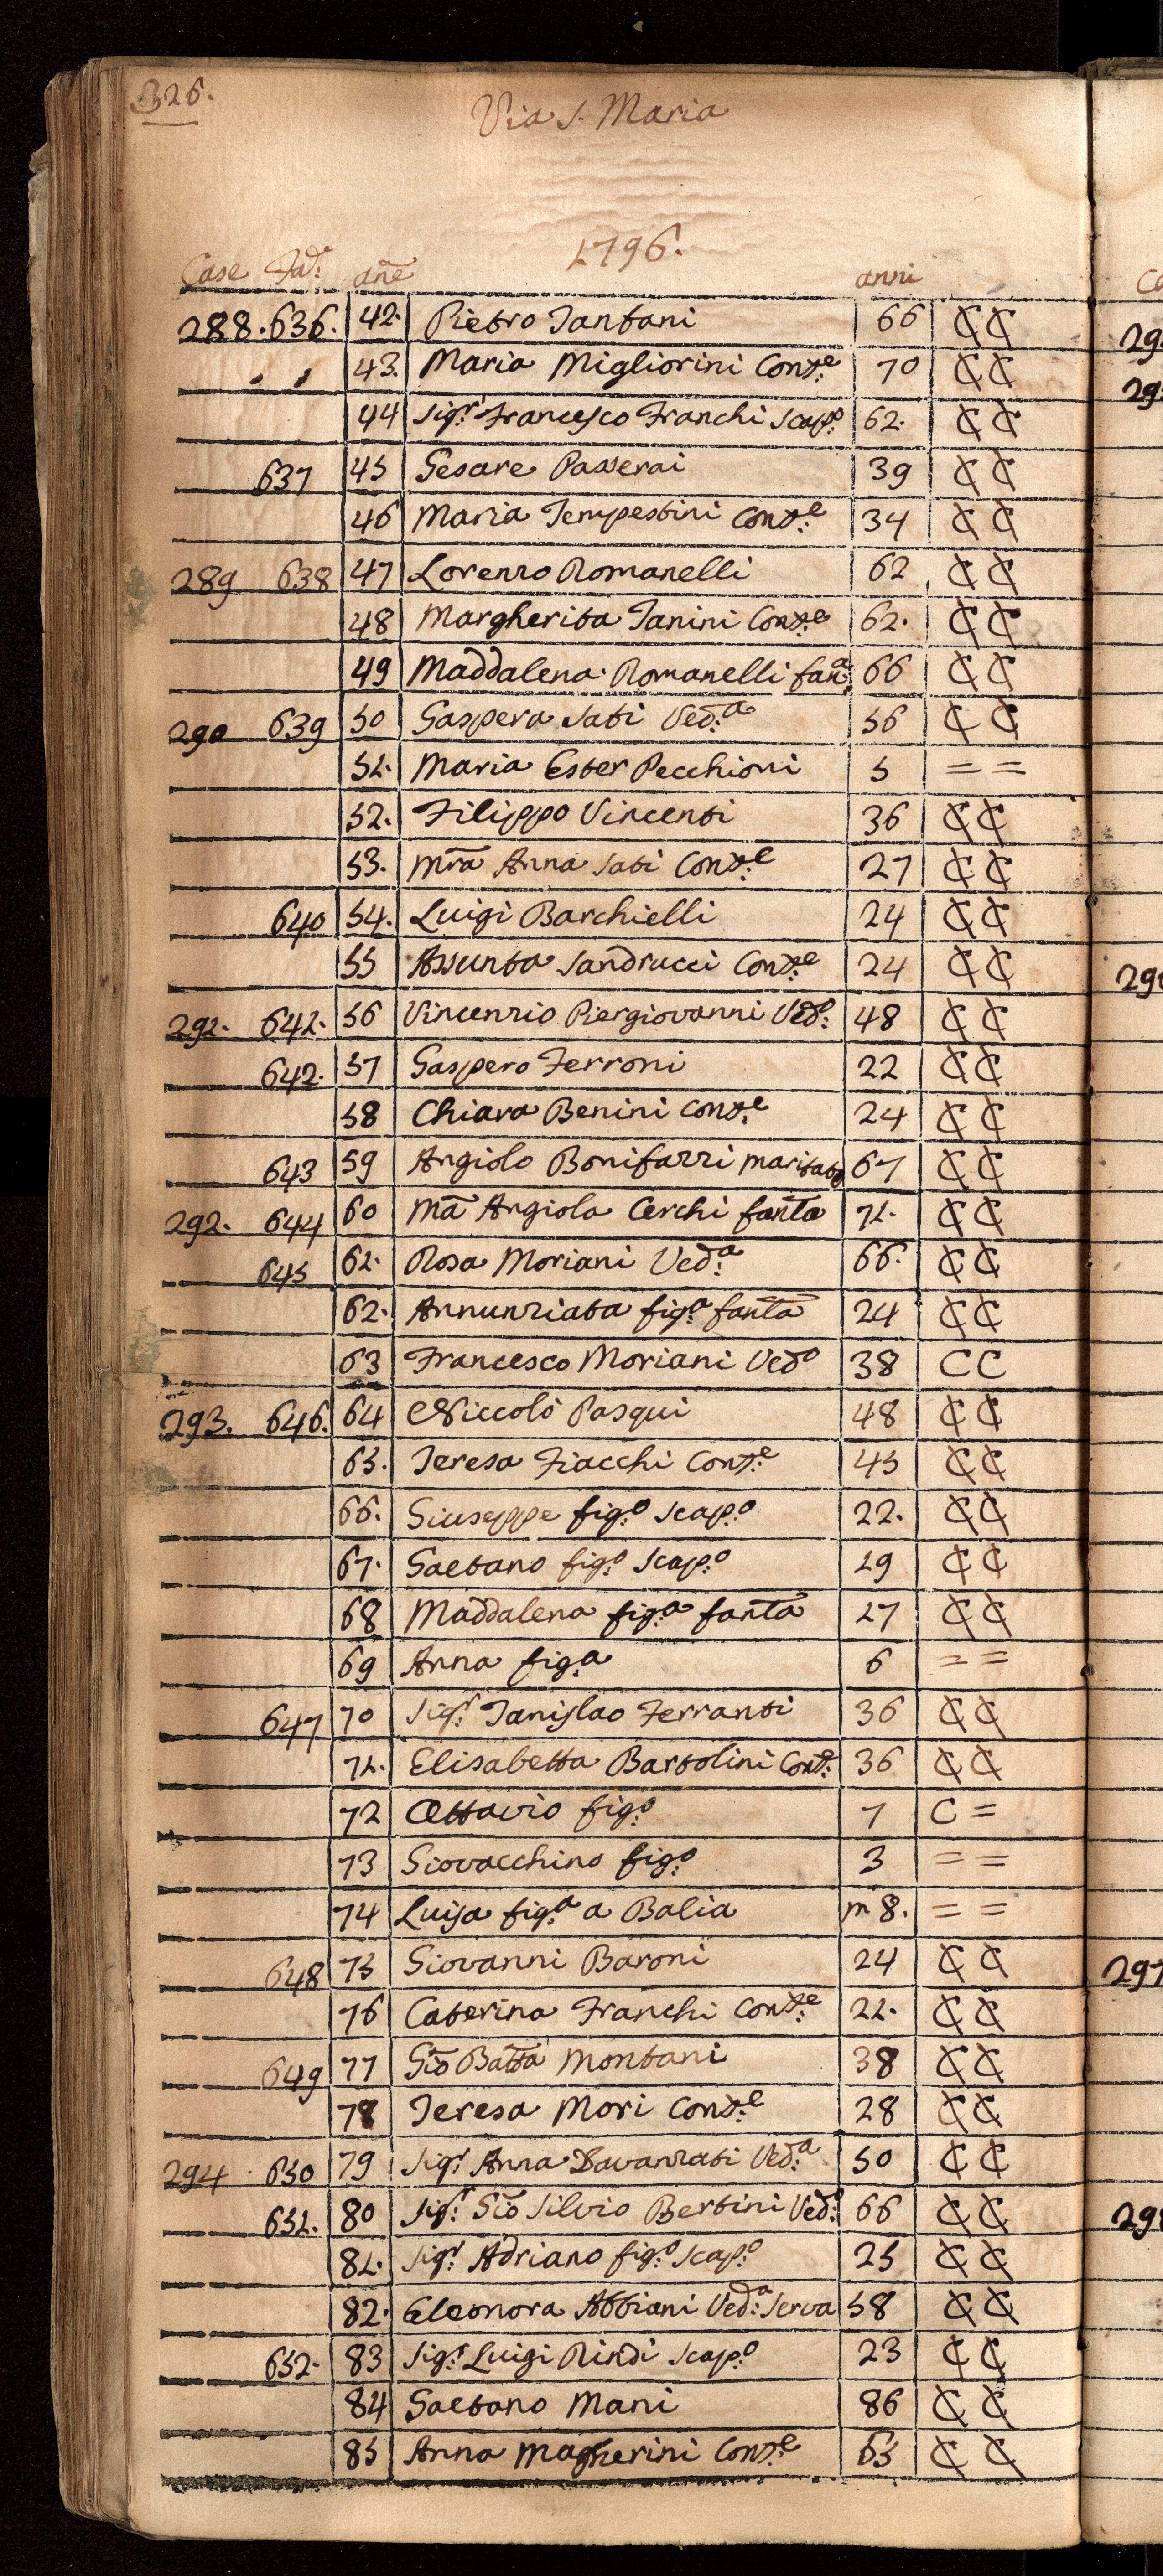 326.
Via S. Maria
1796.
Case Fad: añe anni
288. 636. 42. Pietro Tantani 66 C C
43. Maria Migliorini Cons:e 70 C C
44 Sig:r Francesco Franchi Scap:o 62. C C
637 45 Cesare Passerai 39 C C
46 Maria Tempestini Cons:e 34 C C
289 638 47 Lorenzo Romanelli 62 C C
48 Margherita Tanini Cons:e 62. C C
49 Maddalena Romanelli fan:a 66 C C
290 639 50 Gaspera Sati Ved:a 56 C C
51. Maria Ester Pecchioni 5 = =
52. Filippo Vincenti 36 C C
53. Mra Anna Sati Cons:e 27 C C
640 54. Luigi Barchielli 24 C C
55 Assunta Sandrucci Cons:e 24 C C
291. 641. 56 Vincenzio Piergiovanni Ved:o 48 C C
642. 57 Gaspero Ferroni 22 C C
58 Chiara Benini Cons:e 24 C C
643 59 Angiolo Bonifazzi maritato 67 C C
292. 644 60 Ma Angiola Cerchi fanta 71. C C
645 61. Rosa Moriani Ved:a 66. C C
62. Annunziata fig:a fanta 24 C C
63 Francesco Moriani Ved:o 38 C C
293. 646. 64 Niccolò Pasqui 48 C C
65. Teresa Fiacchi Cons:e 45 C C
66. Giuseppe fig:o Scap:o 22. C C
67. Gaetano fig:o Scap:o 19 C C
68 Maddalena fig:a fanta 17 C C
69 Anna fig:a 6 = =
647 70 Sig:r Tanislao Ferranti 36 C C
71. Elisabetta Bartolini Cons:e 36 C C
72 Ottavio fig:o 7 C =
73 Giovacchino fig:o 3 = =
74 Luisa fig:a a Balia m 8. = =
648 75 Giovanni Baroni 24 C C
76 Caterina Franchi Cons:e 21. C C
649 77 Gio Batta Montani 38 C C
78 Teresa Mori Cons:e 28 C C
294 650 79 Sig:r Anna Davanzati Ved:a 50 C C
651. 80 Sig:r Gio Silvio Bertini Ved:o 66 C C
81. Sig:r Adriano fig:o Scap:o 25 C C
82. Eleonora Abbiani Ved:a Serva 58 C C
652. 83 Sig:r Luigi Rindi Scap:o 23 C C
84 Gaetano Mani 86 C C
85 Anna Magherini Cons:e 65 C C